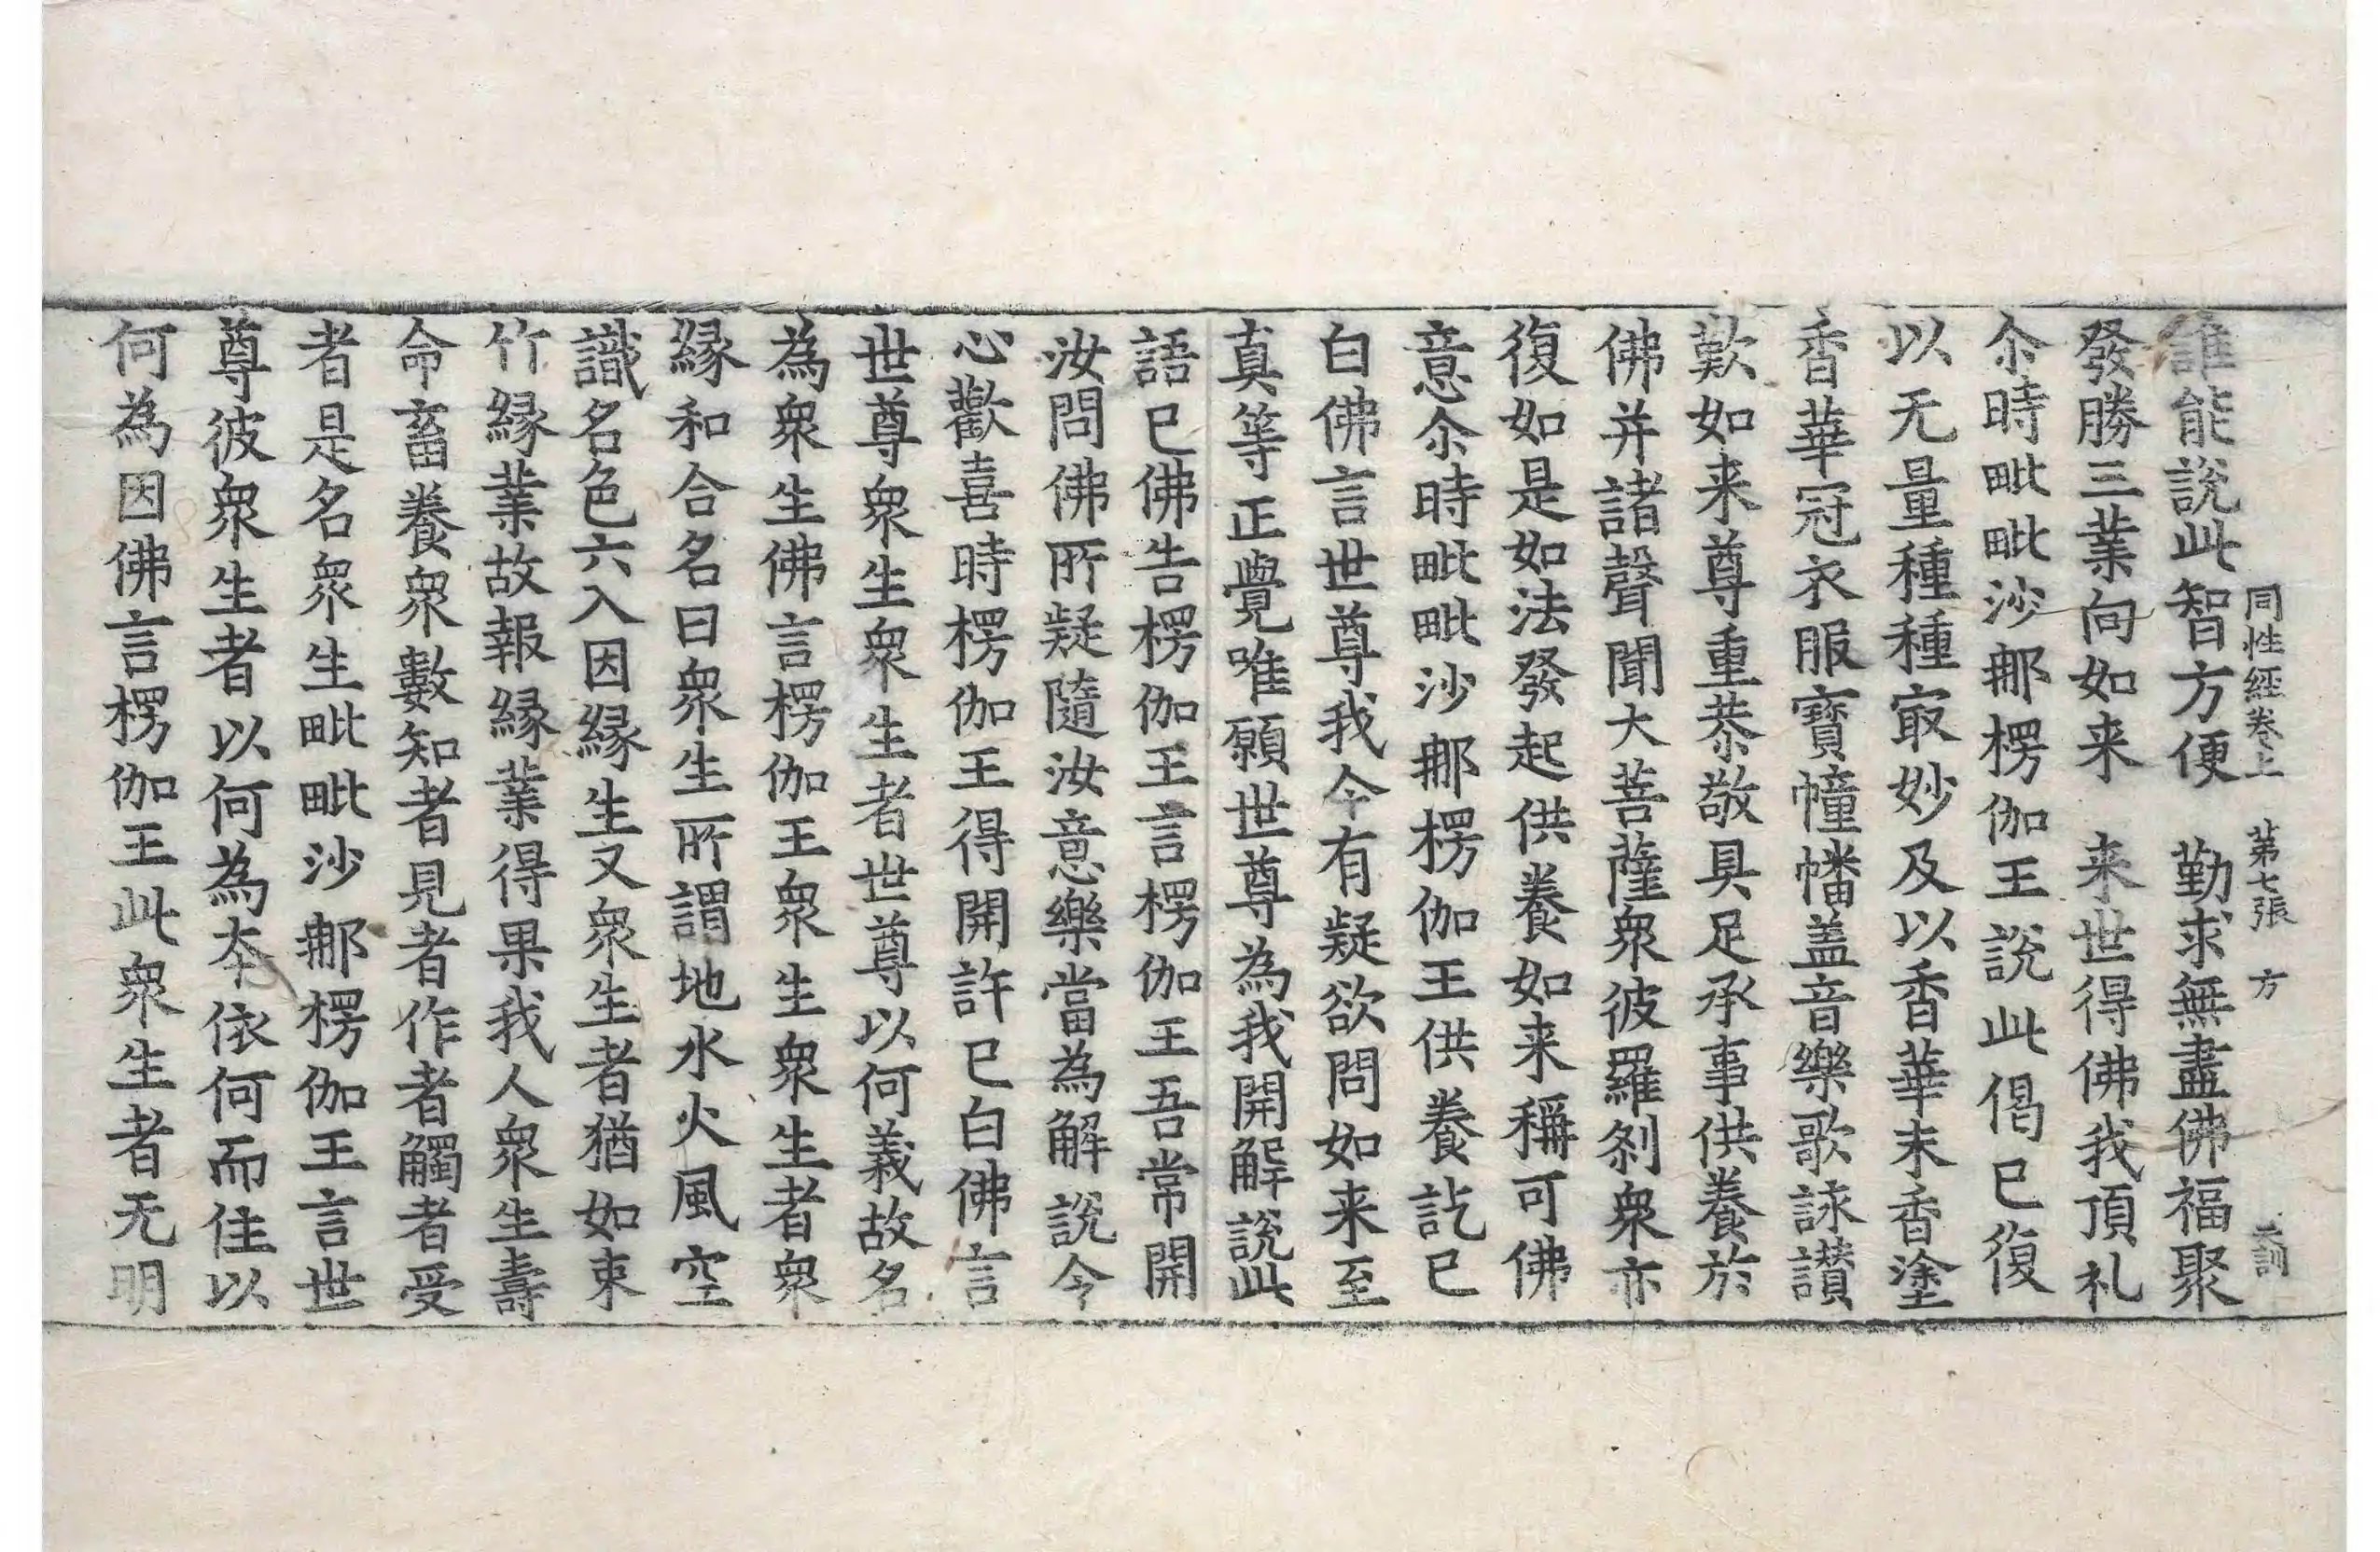 同性經卷上 第七張 方 天訓
誰能說此智方便 勤求無盡佛福聚
發勝三業向如来 来世得佛我頂礼
尒時毗毗沙郍楞伽王說此偈巳復
以无量種種㝡妙及以香華末香塗
香華冠衣服寶幢幡盖音樂歌詠讃
歎如来尊重恭敬具足承事供養於
佛并諸聲聞大菩薩衆彼羅剎衆亦
復如是如法發起供養如来稱可佛
意尒時毗毗沙郍楞伽王供養訖巳
白佛言世尊我今有疑欲問如来至
真等正覺唯願世尊為我開解說此
語巳佛告楞伽王言楞伽王吾常開
汝問佛所疑隨汝意樂當為解說今
心歡喜時楞伽王得開許巳白佛言
世尊衆生衆生者世尊以何義故名
為衆生佛言楞伽王衆生衆生者衆
緣和合名曰衆生所謂地水火風空
識名色六入因緣生又衆生者猶如束
竹緣業故報緣業得果我人衆生壽
命畜養衆數知者見者作者觸者受
者是名衆生毗毗沙郍楞伽王言世
尊彼衆生者以何為夲依何而住以
何為因佛言楞伽王此衆生者无明